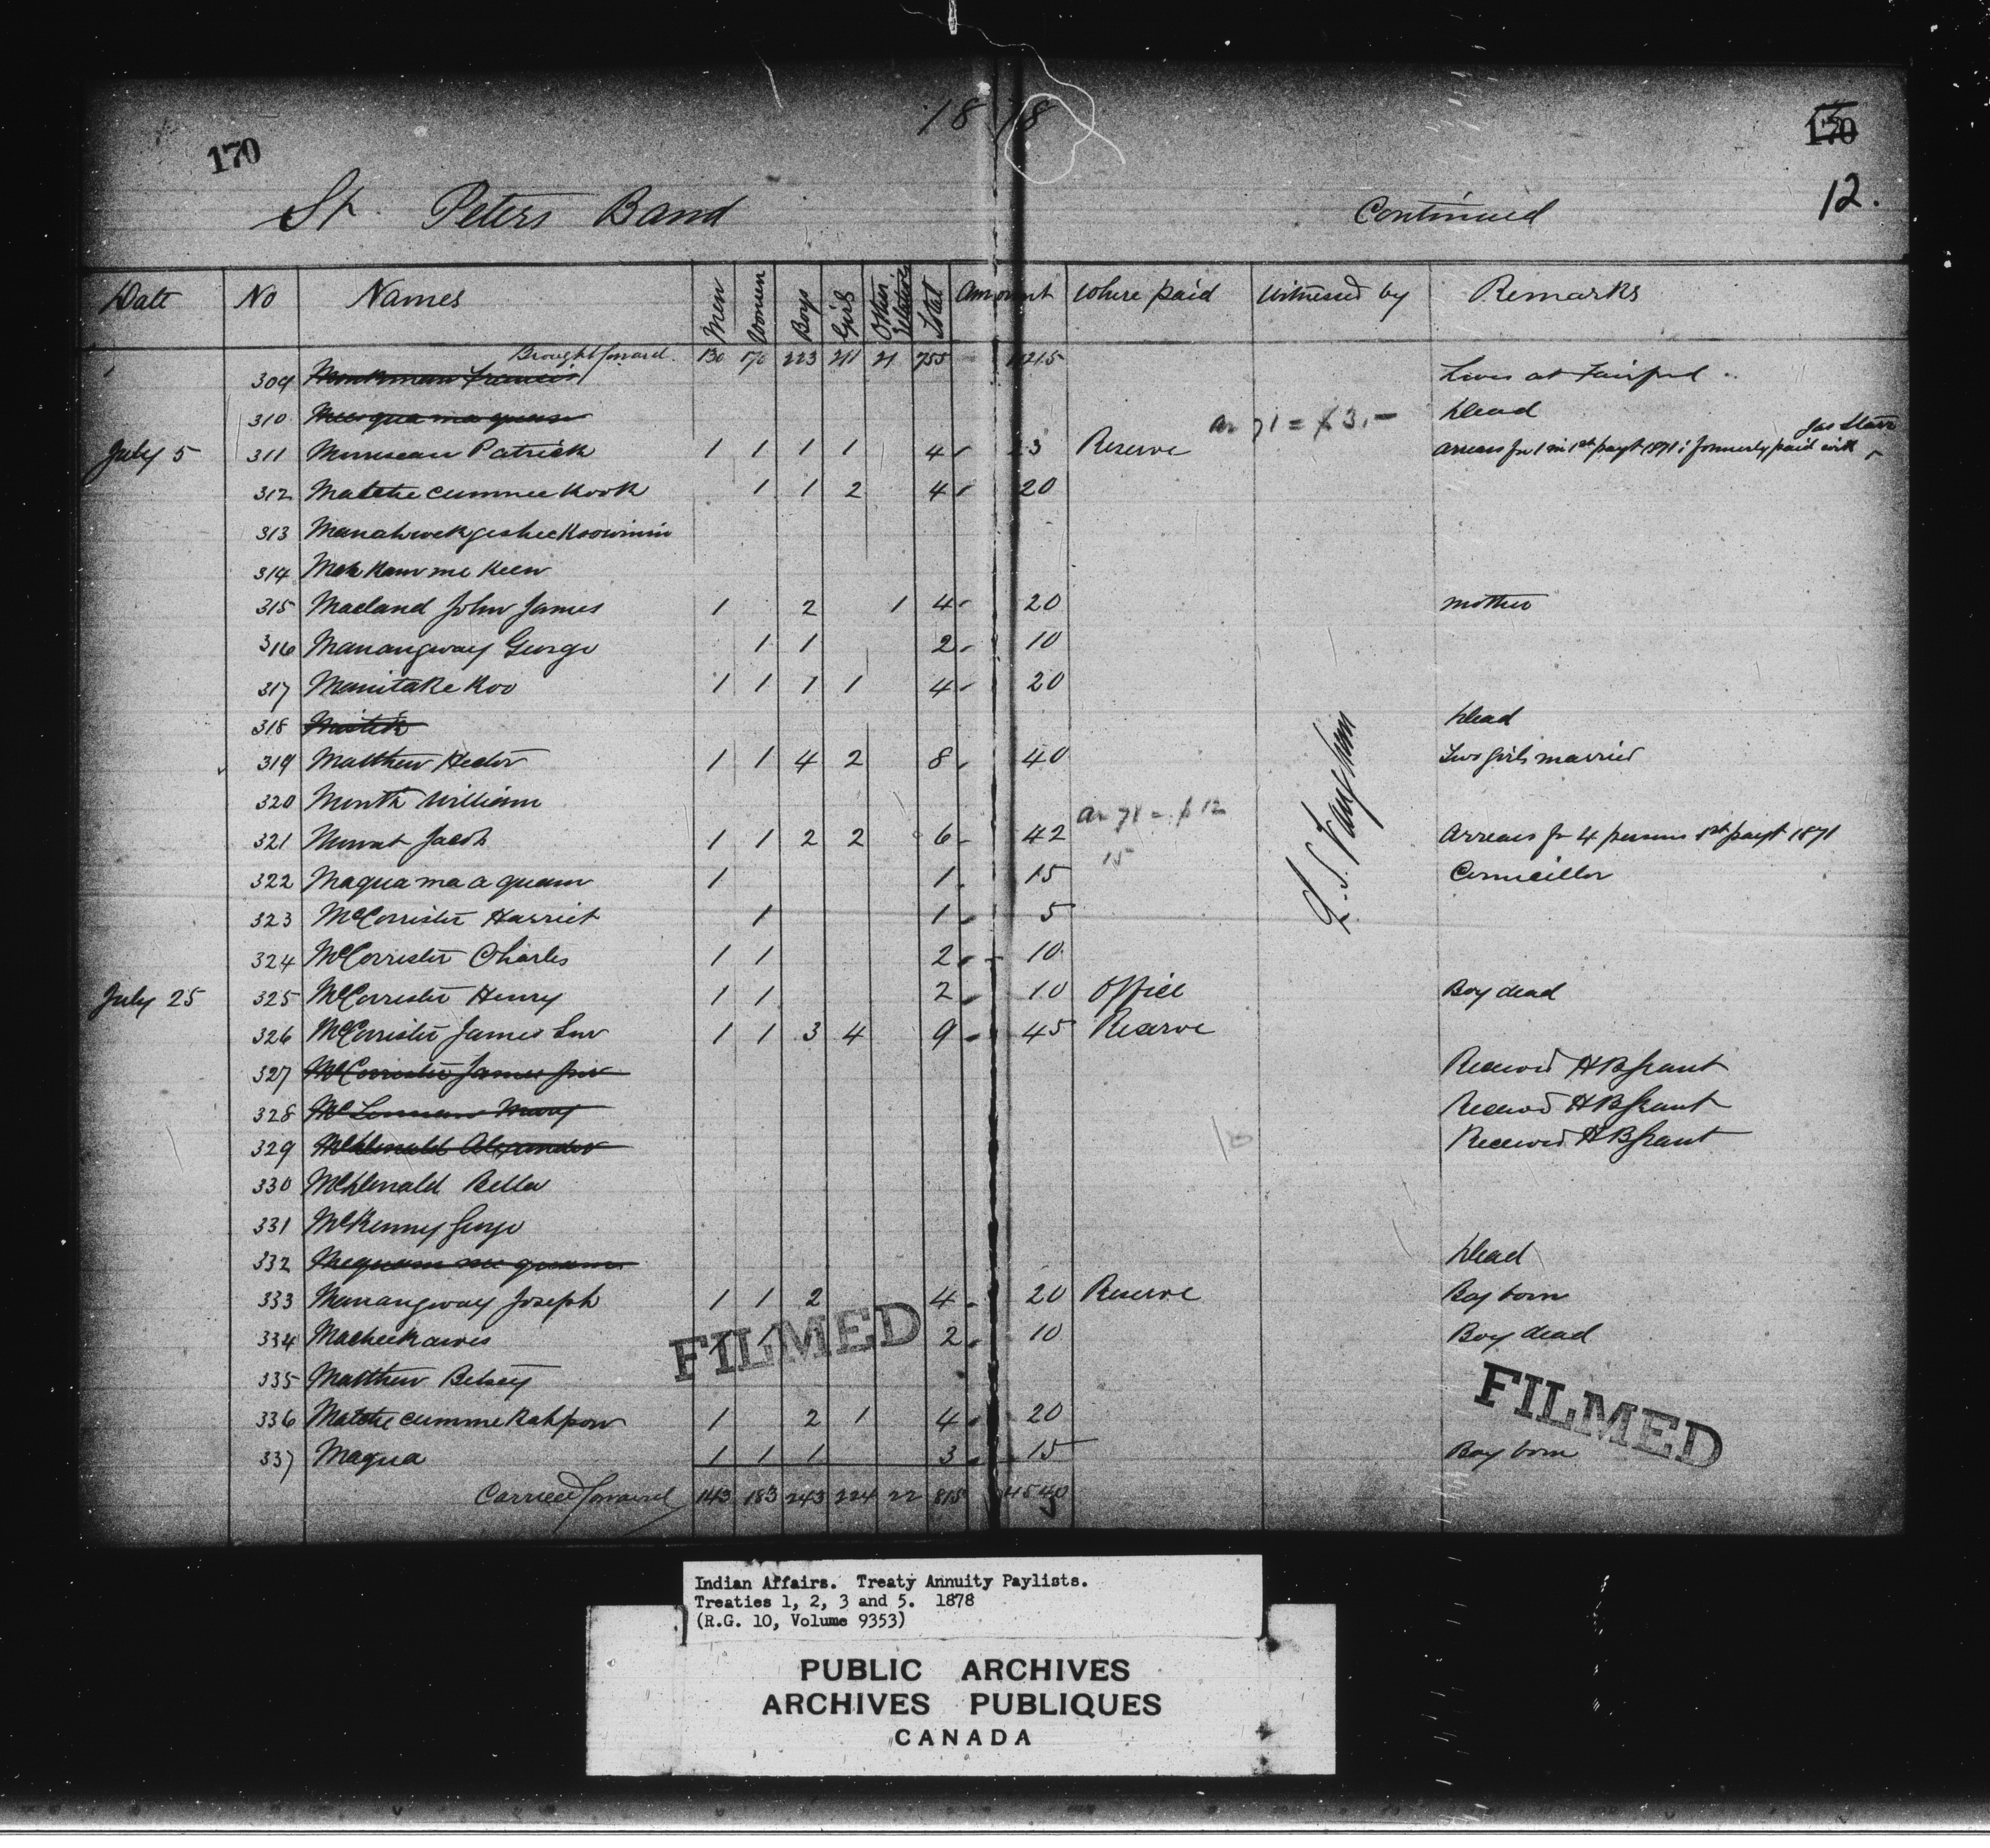 1878
170
170
12.
St. Peters Band Continued
Date No Names Men Women Boys Girls Other Relatives Total Amount Where paid Witnessed by Remarks
Brought forward. 130 170 223 211 21 755 4215
309 Monkman Francis Lives at Fairford
310 Dead
ar 71 = $3.—
Jas Starr
July 5 311 Patrick 1 1 1 1 4 23 Reserve Arrears for 1 in 1st payt 1871; formerly paid with
312 Matchecumneekook 1 1 2 4 20
313 Manahwekgesheekoowinin
314
315 Macland John James 1 2 1 4 20 mother
316 Manangway George 1 1 2 10
317 Manitakekoo 1 1 1 1 4 20
318 Mistik Dead
319 Matthew Hector 1 1 4 2 8 40 Two girls married
320 Month William
ar 71 = $12
321 Mowat Jacob 1 1 2 2 6 42 Arrears for 4 persons 1st payt 1871
15
322 Maquamaaquam 1 1 15 Councillor
323 McCorrister Harriet 1 1 5
324 McCorrister Charles 1 1 2 10
July 25 325 McCorrister Henry 1 1 2 10 Office Boy dead
326 McCorrister James Snr 1 1 3 4 9 45 Reserve
327 McCorrister James Jnr Received HB Grant
328 McLennan Mary Received HB Grant
329 McDonald Alexander Received HB Grant
330 McDonald Bella
331 McKenney George
332 Dead
333 Manangway Joseph 1 1 2 4 20 Reserve Boy born
334 Macheekawes 1 1 2 10 Boy dead
335 Matthew Betsey
336 Matchecummekahpow 1 2 1 4 20
337 Maqua 1 1 1 3 15 Boy born
Carried forward 143 183 243 224 22 815 4540
FILMED
FILMED
Indian Affairs. Treaty Annuity Paylists.
Treaties 1, 2, 3 and 5. 1878
(R.G. 10, Volume 9353)
PUBLIC ARCHIVES
ARCHIVES PUBLIQUES
CANADA